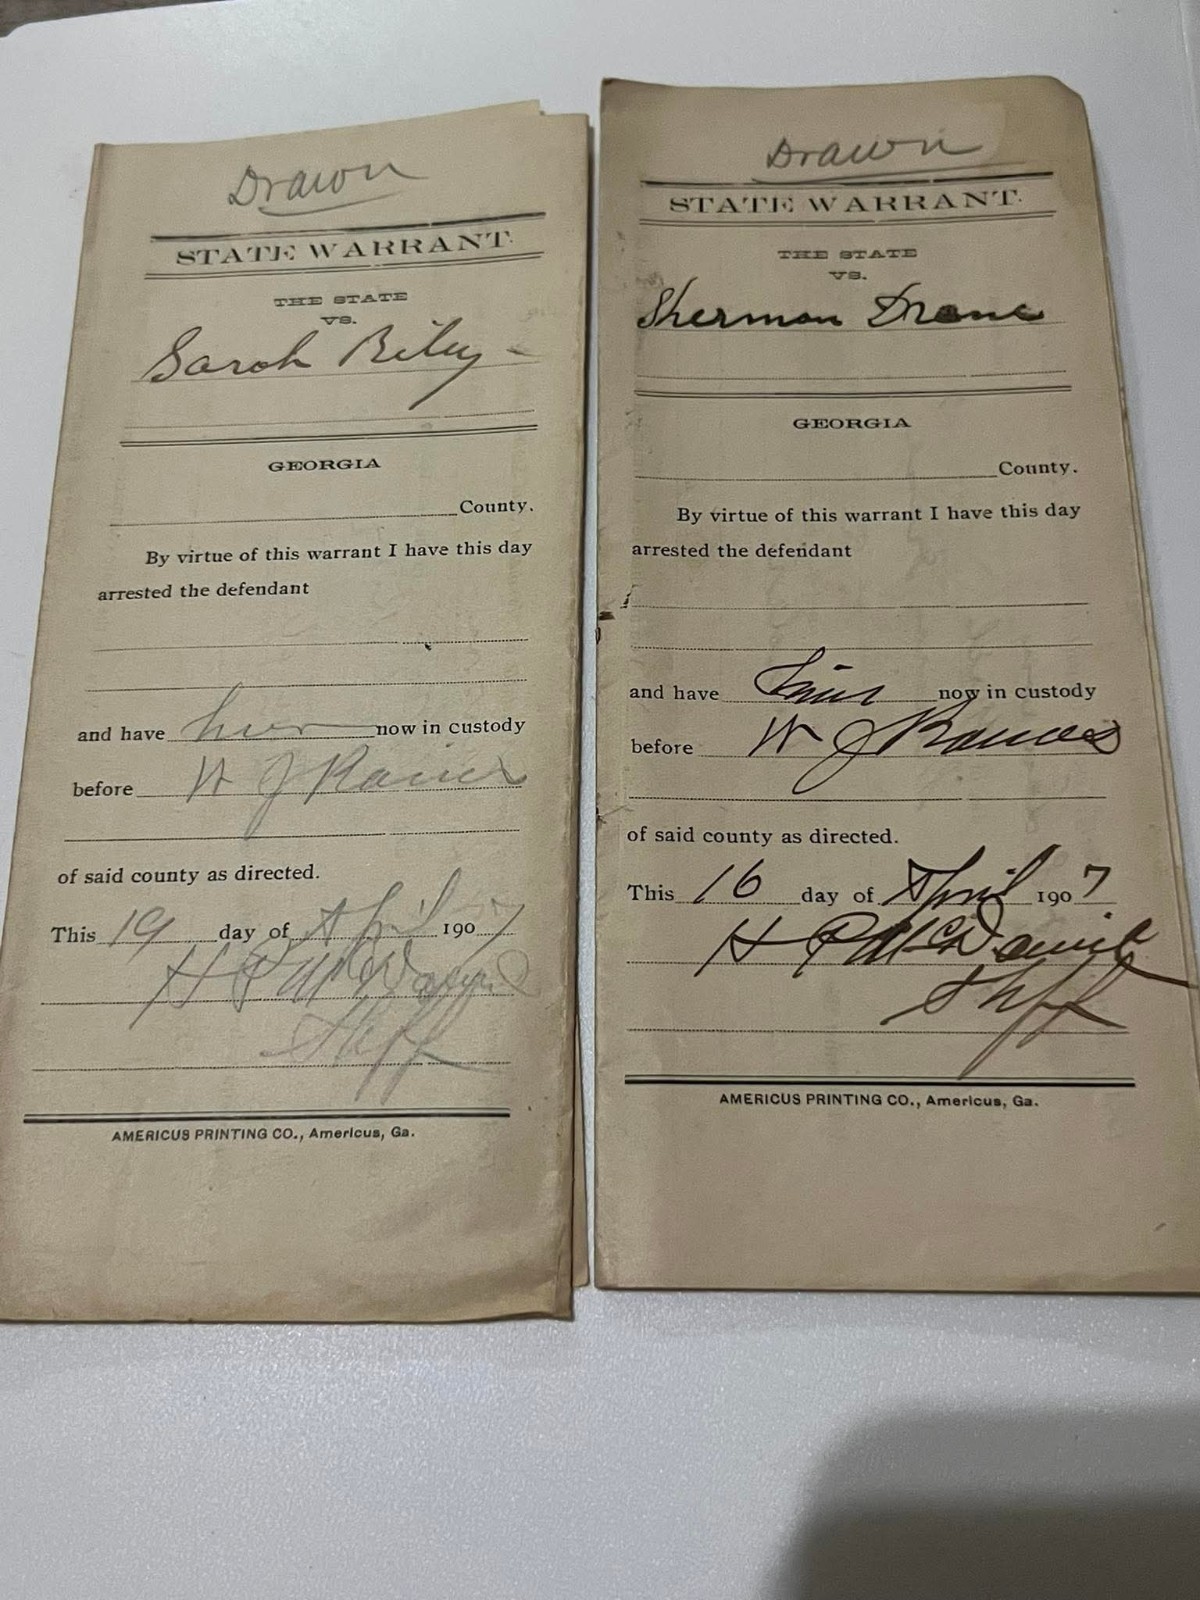 Drawn
STATE WARRANT.
THE STATE
VS.
Sarah Riley
GEORGIA
County.
By virtue of this warrant I have this day
arrested the defendant
and have her now in custody
before W J
of said county as directed.
This 19 day of April 1907
H P McDaniel
Shff
AMERICUS PRINTING CO., Americus, Ga.
Drawn
STATE WARRANT.
THE STATE
VS.
Sherman Drane
GEORGIA
County.
By virtue of this warrant I have this day
arrested the defendant
and have him now in custody
before W J
of said county as directed.
This 16 day of April 1907
H P McDaniel
Shff
AMERICUS PRINTING CO., Americus, Ga.